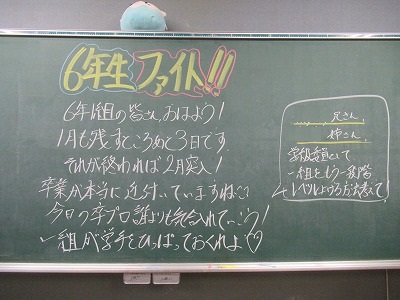 6年生ファイト!!
6年1組の皆さん、おはよう!
1月も残すところあと3日です。
それが終われば2月突入!
卒業が本当に近付いていますね
今日の卒プロ誰よりも気合入れていこう!
一組が学年をひっぱっておくれよ♡
兄さん
姉さん
学級委員として
一組をもう一段階
レベルアップする方法考えて!